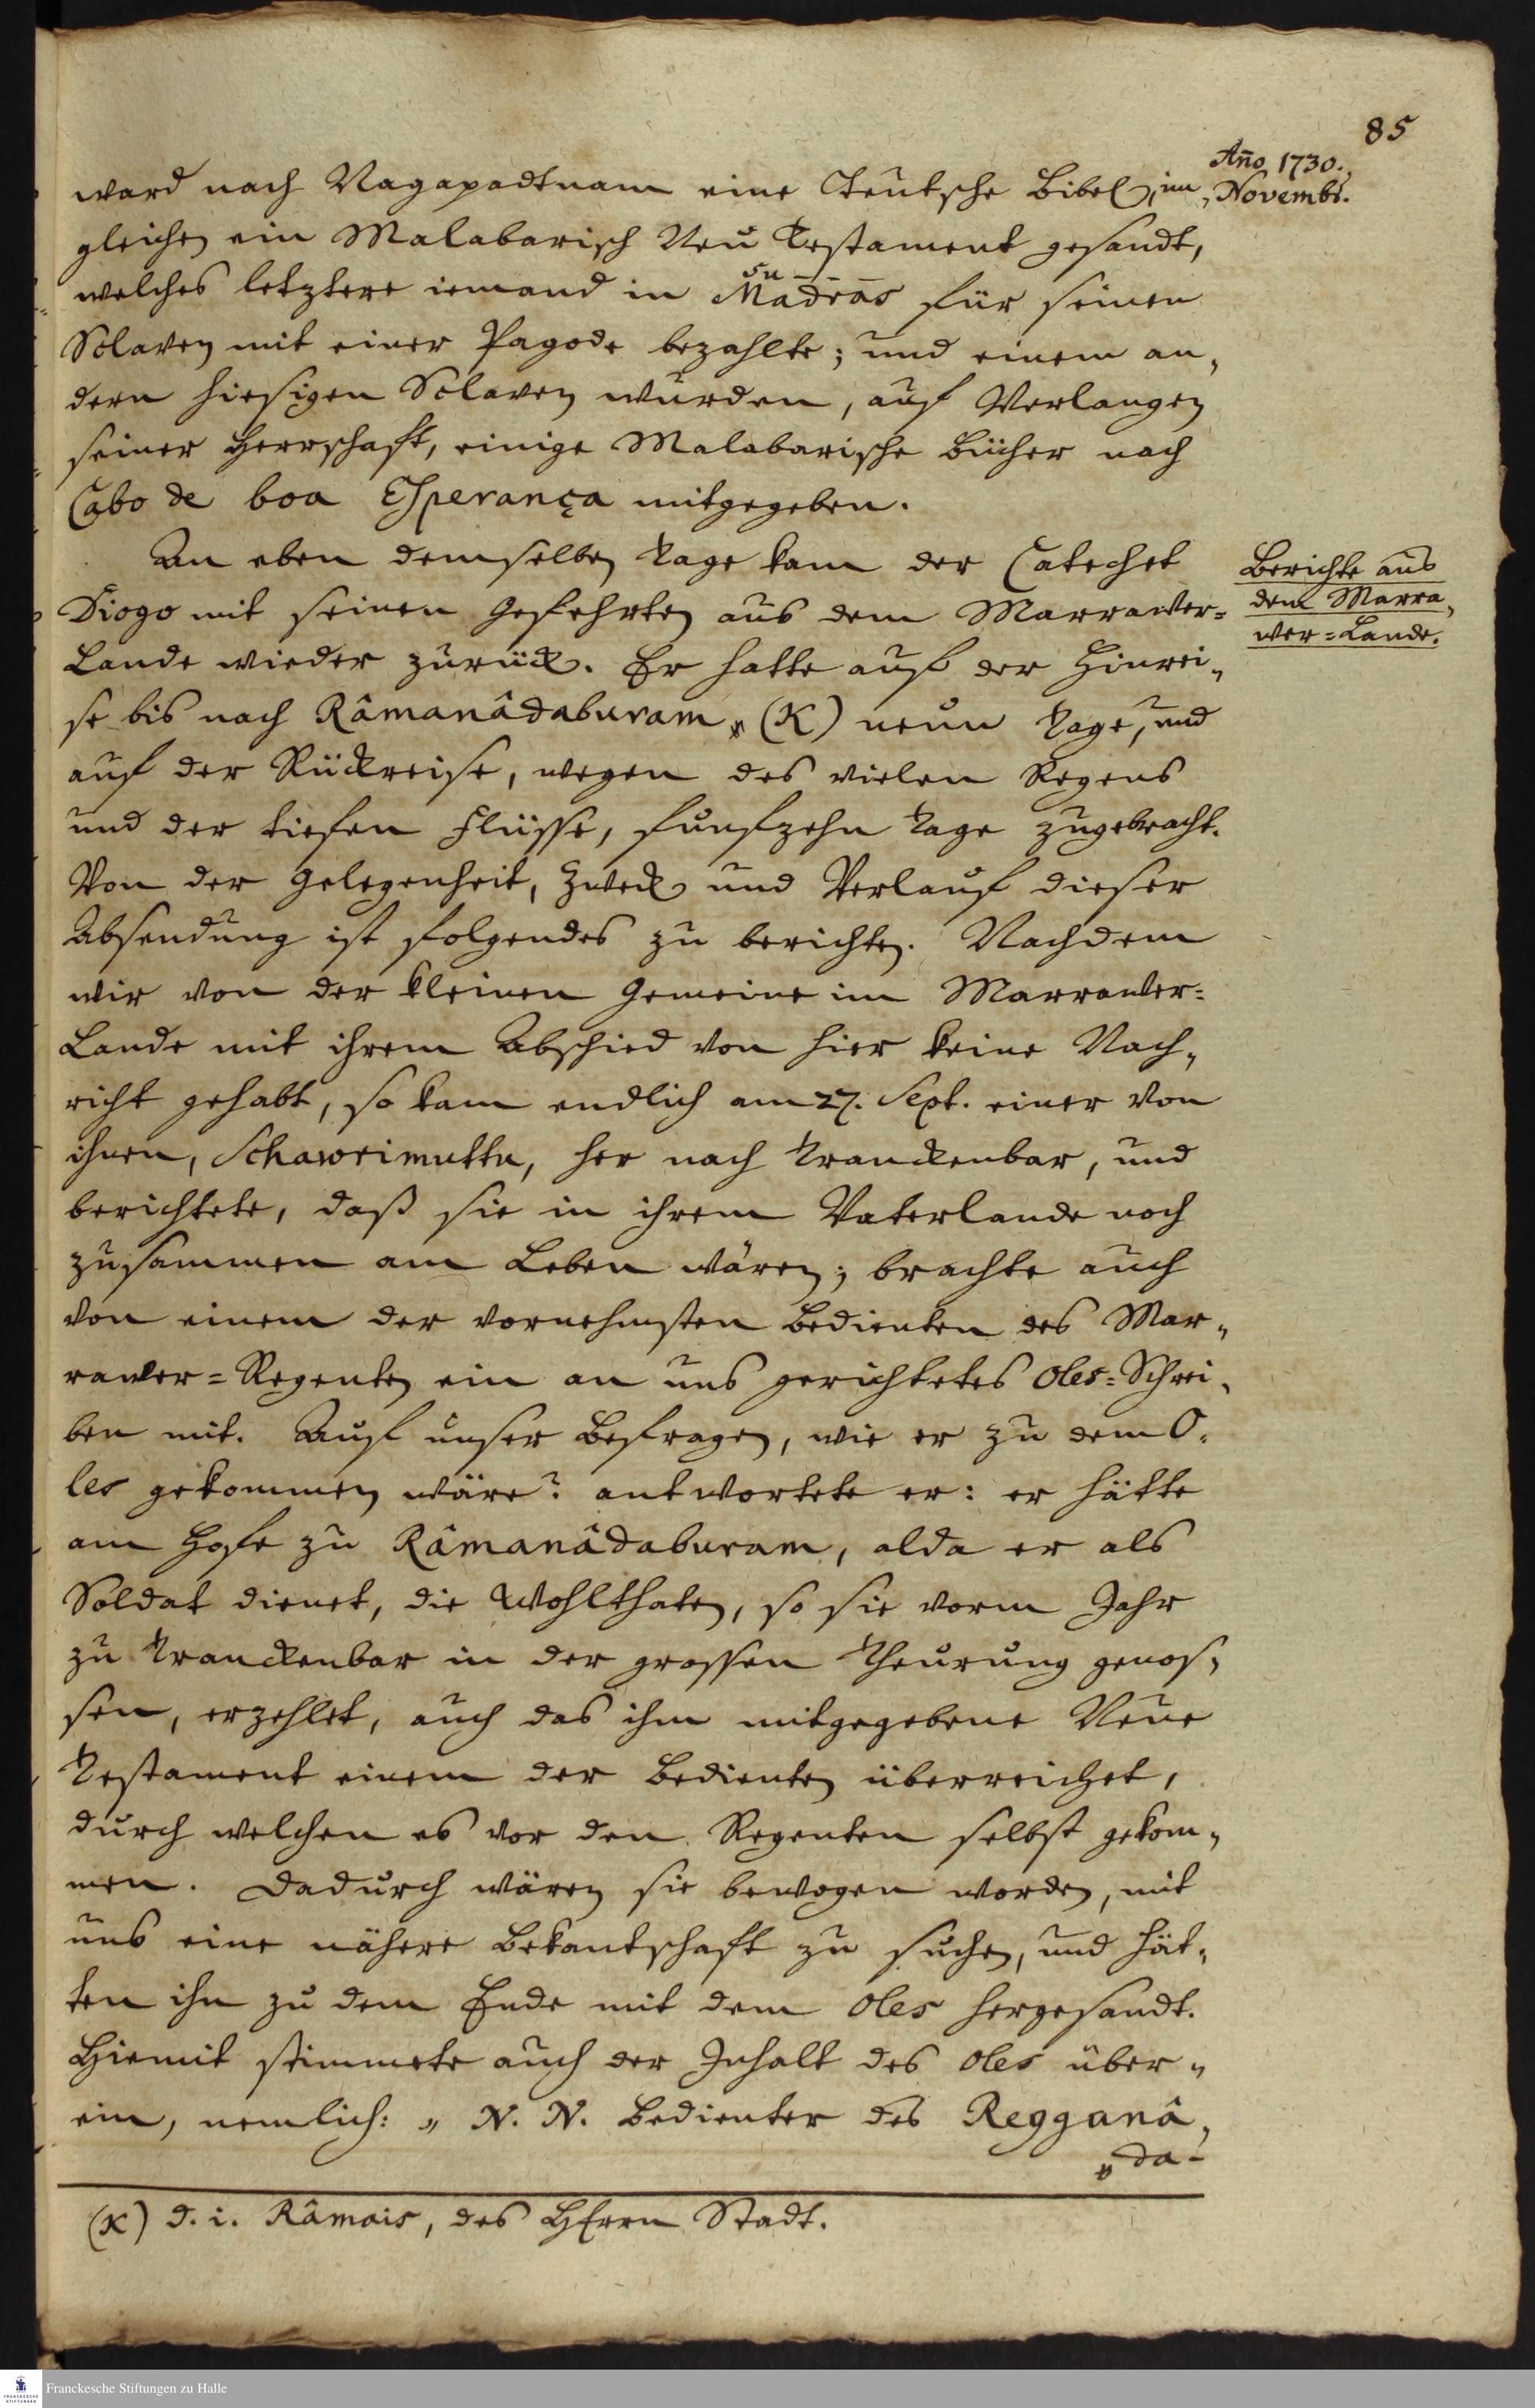 85
Año 1730.
Novembr.
ward nach Nagapadtnam eine Teutsche Bibel, im„
gleichen ein Malabarisch Neu Testament gesandt,
welches letztere iemand in Madras für seinen
Sclaven mit einer Pagode bezahlte; und einem an„
dern hiesigen Sclaven wurden, auf Verlangen
seiner Herrschaft, einige Malabarische Bücher nach
Cabo de boa Esperança mitgegeben.
An eben demselben Tage kam der Catechet
Diogo mit seinen Gefehrten aus dem Marrawer=
Lande wieder zurück. Er hatte auf der Hinrei„
se bis nach Râmanâdaburam (K) neun Tage, und
auf der Rückreise, wegen des vielen Regens
und der tiefen Flüsse, funfzehn Tage zugebracht.
Von der Gelegenheit, Zweck und Verlauf dieser
Absendung ist folgendes zu berichten. Nachdem
wir von der kleinen Gemeine im Marrawer=
Lande mit ihrem Abschied von hier keine Nach„
richt gehabt, so kam endlich am 27. Sept. einer von
ihnen, Schawrimuttu, her nach Tranckenbar, und
berichtete, daß sie in ihrem Vaterlande noch
zusammen am Leben wären; brachte auch
von einem der vornehmsten Bedienten des Mar„
rawer=Regenten ein an uns gerichtetes Oles=Schrei„
ben mit. Auf unser Befragen, wie er zu dem O„
les gekommen wäre? antwortete er: er hätte
am Hofe zu Râmanâdaburam, alda er als
Soldat dienet, die Wohlthaten, so sie vorm Jahr
zu Tranckenbar in der grossen Theurung genos„
sen, erzehlet, auch das ihm mitgegebene Neue
Testament einem der Bedienten überreichet,
durch welchen es vor den Regenten selbst gekom„
men. Dadurch wären sie bewogen worden, mit
uns eine nähere Bekantschaft zu suchen, und hät„
ten ihn zu dem Ende mit dem Oles hergesandt.
Hiemit stimmete auch der Inhalt des Oles über„
ein, nemlich: „ N. N. Bedienter des Regganâ„
„ da-
(K) d. i. Râmais, des HErrn Stadt.
Berichte aus
dem Marra„
wer=Lande.
Franckesche Stiftungen zu Halle